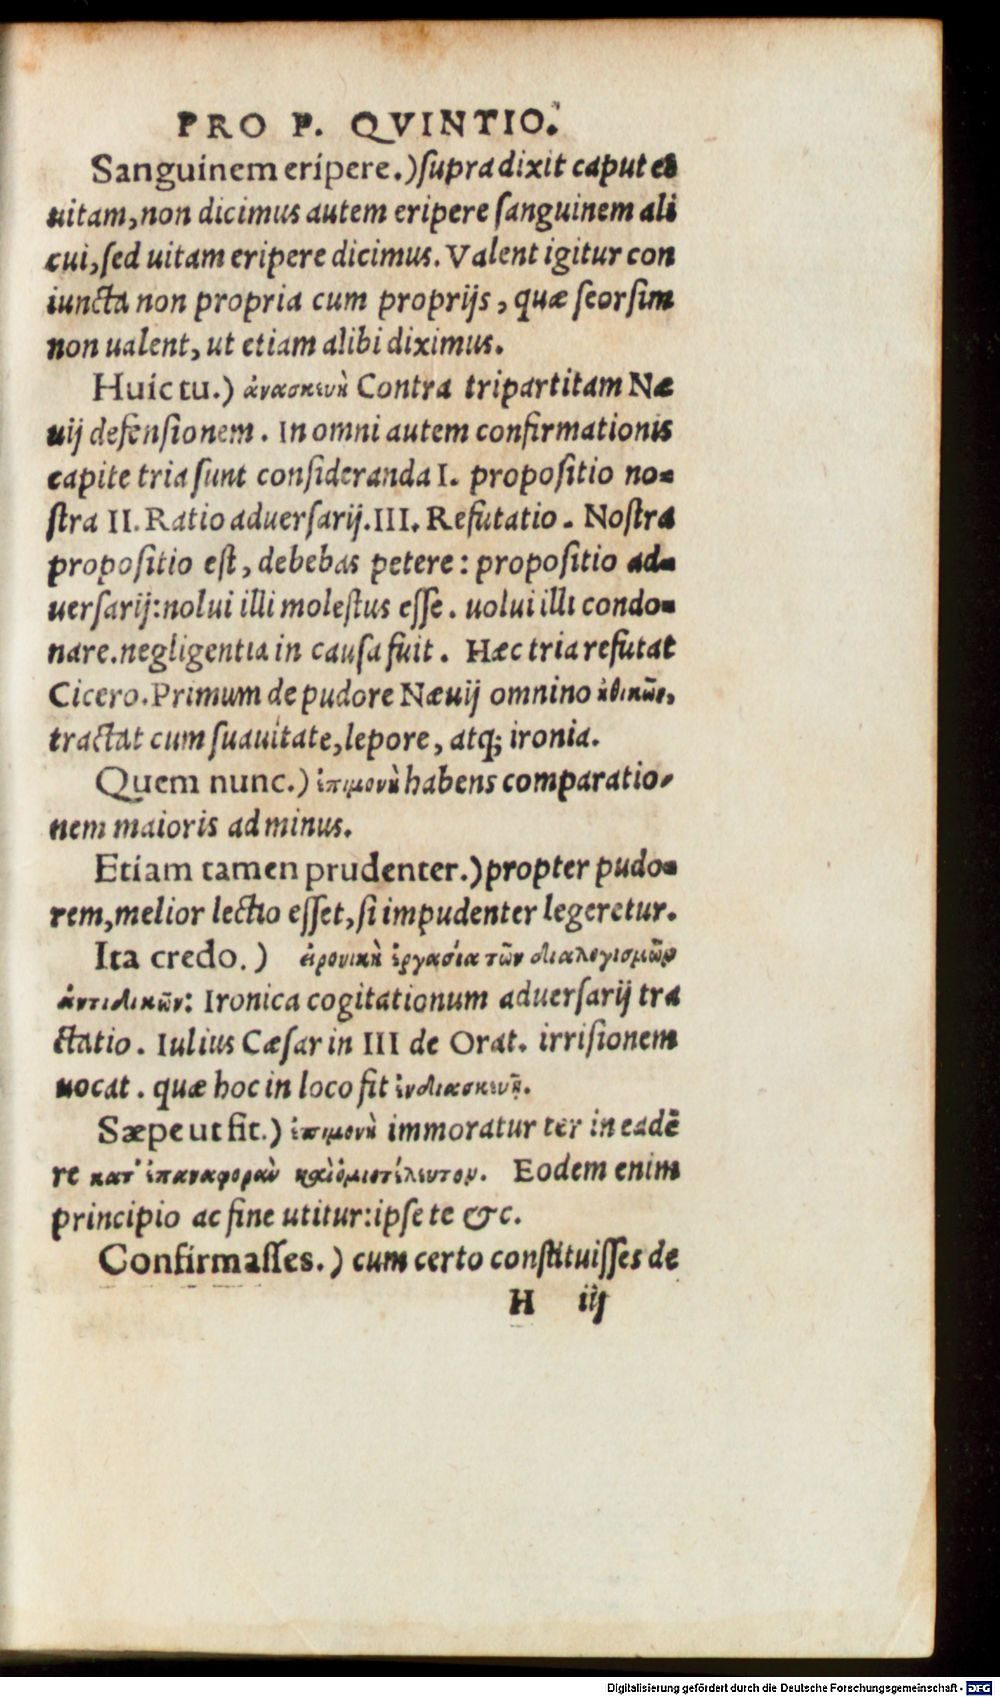 PRO P. QVINTIO.
Sanguinem eripere.) supra dixit caput et
uitam, non dicimus autem eripere sanguinem ali
cui, sed uitam eripere dicimus. Valent igitur con
iuncta non propria cum proprijs, quæ seorsim
non ualent, ut etiam alibi diximus.
Huic tu.) ἀνασκευὴ Contra tripartitam Næ
uij defensionem. In omni autem confirmationis
capite tria sunt consideranda I. propositio no-
stra II. Ratio aduersarij. III. Refutatio. Nostra
propositio est, debebas petere: propositio ad-
uersarij: nolui illi molestus esse. uolui illi condo-
nare. negligentia in causa fuit. Hæc tria refutat
Cicero. Primum de pudore Næuij omnino ἠθικῶς,
tractat cum suauitate, lepore, atq; ironia.
Quem nunc.) ἐπιμονὴ habens comparatio-
nem maioris ad minus.
Etiam tamen prudenter.) propter pudo-
rem, melior lectio esset, si impudenter legeretur.
Ita credo.) εἰρονικὴ ἐργασία τῶν διαλογισμῶν
ἀντιδικῶν: Ironica cogitationum aduersarij tra
ctatio. Iulius Cæsar in III de Orat. irrisionem
uocat. quæ hoc in loco fit ἐνδιασκευῇ.
Sæpe ut fit.) ἐπιμονὴ immoratur ter in eadē
re κατ' ἐπαναφορὰν καὶ ὁμιοτέλευτον. Eodem enim
principio ac fine utitur: ipse te &c.
Confirmasses.) cum certo constituisses de
H iij
Digitalisierung gefördert durch die Deutsche Forschungsgemeinschaft - DFG